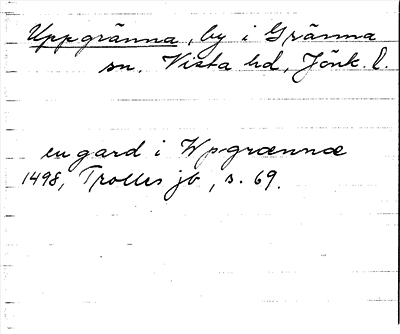 Uppgränna, by i Gränna
sn. Vista hd, Jönk. l.
en gard i Wpgrænnæ
1498, Trolles jb, s. 69.